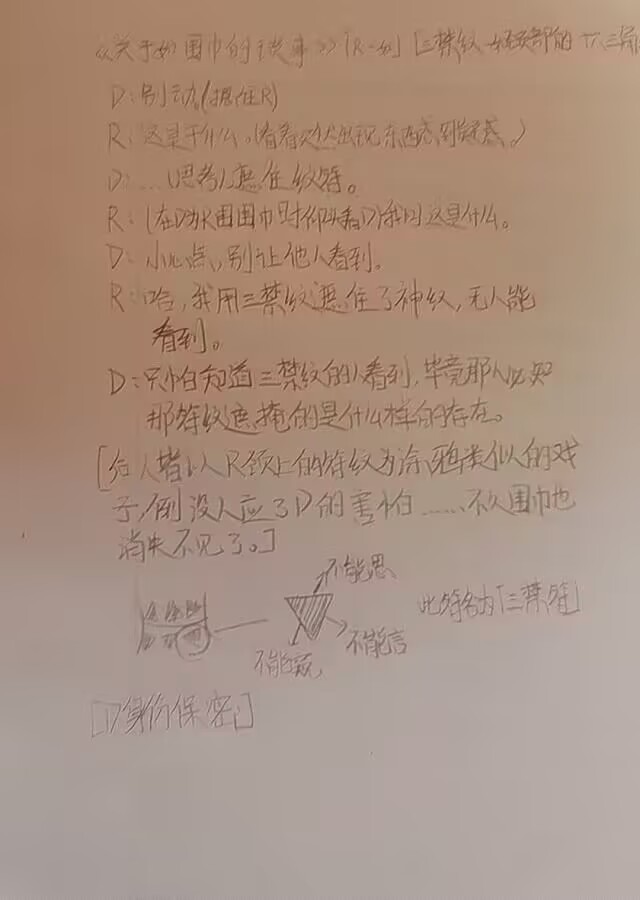 《关于如围巾的轶事》〔R-如〕[三禁纹-如颈部的 三角
D:别动。(摁住R)
R:这是干什么。(看着突然出现 东西感到疑惑。)
D:…(思考)遮住纹符。
R:(在D为R围围巾时仰头看D)我问这是什么。
D:小心点,别让他人看到。
R:哈,我用三禁纹遮住了神纹,无人能
看到。
D:只怕知道三禁纹的人看到,毕竟那人必知
那符纹遮掩的是什么样的存在。
[ 人皆以R颈上的符纹为涂鸦类似的戏
子,倒没人应了D的害怕……不久围巾也
消失不见了。]
不能思
此符名为「三禁符」
不能言
不能
[D身份保密]